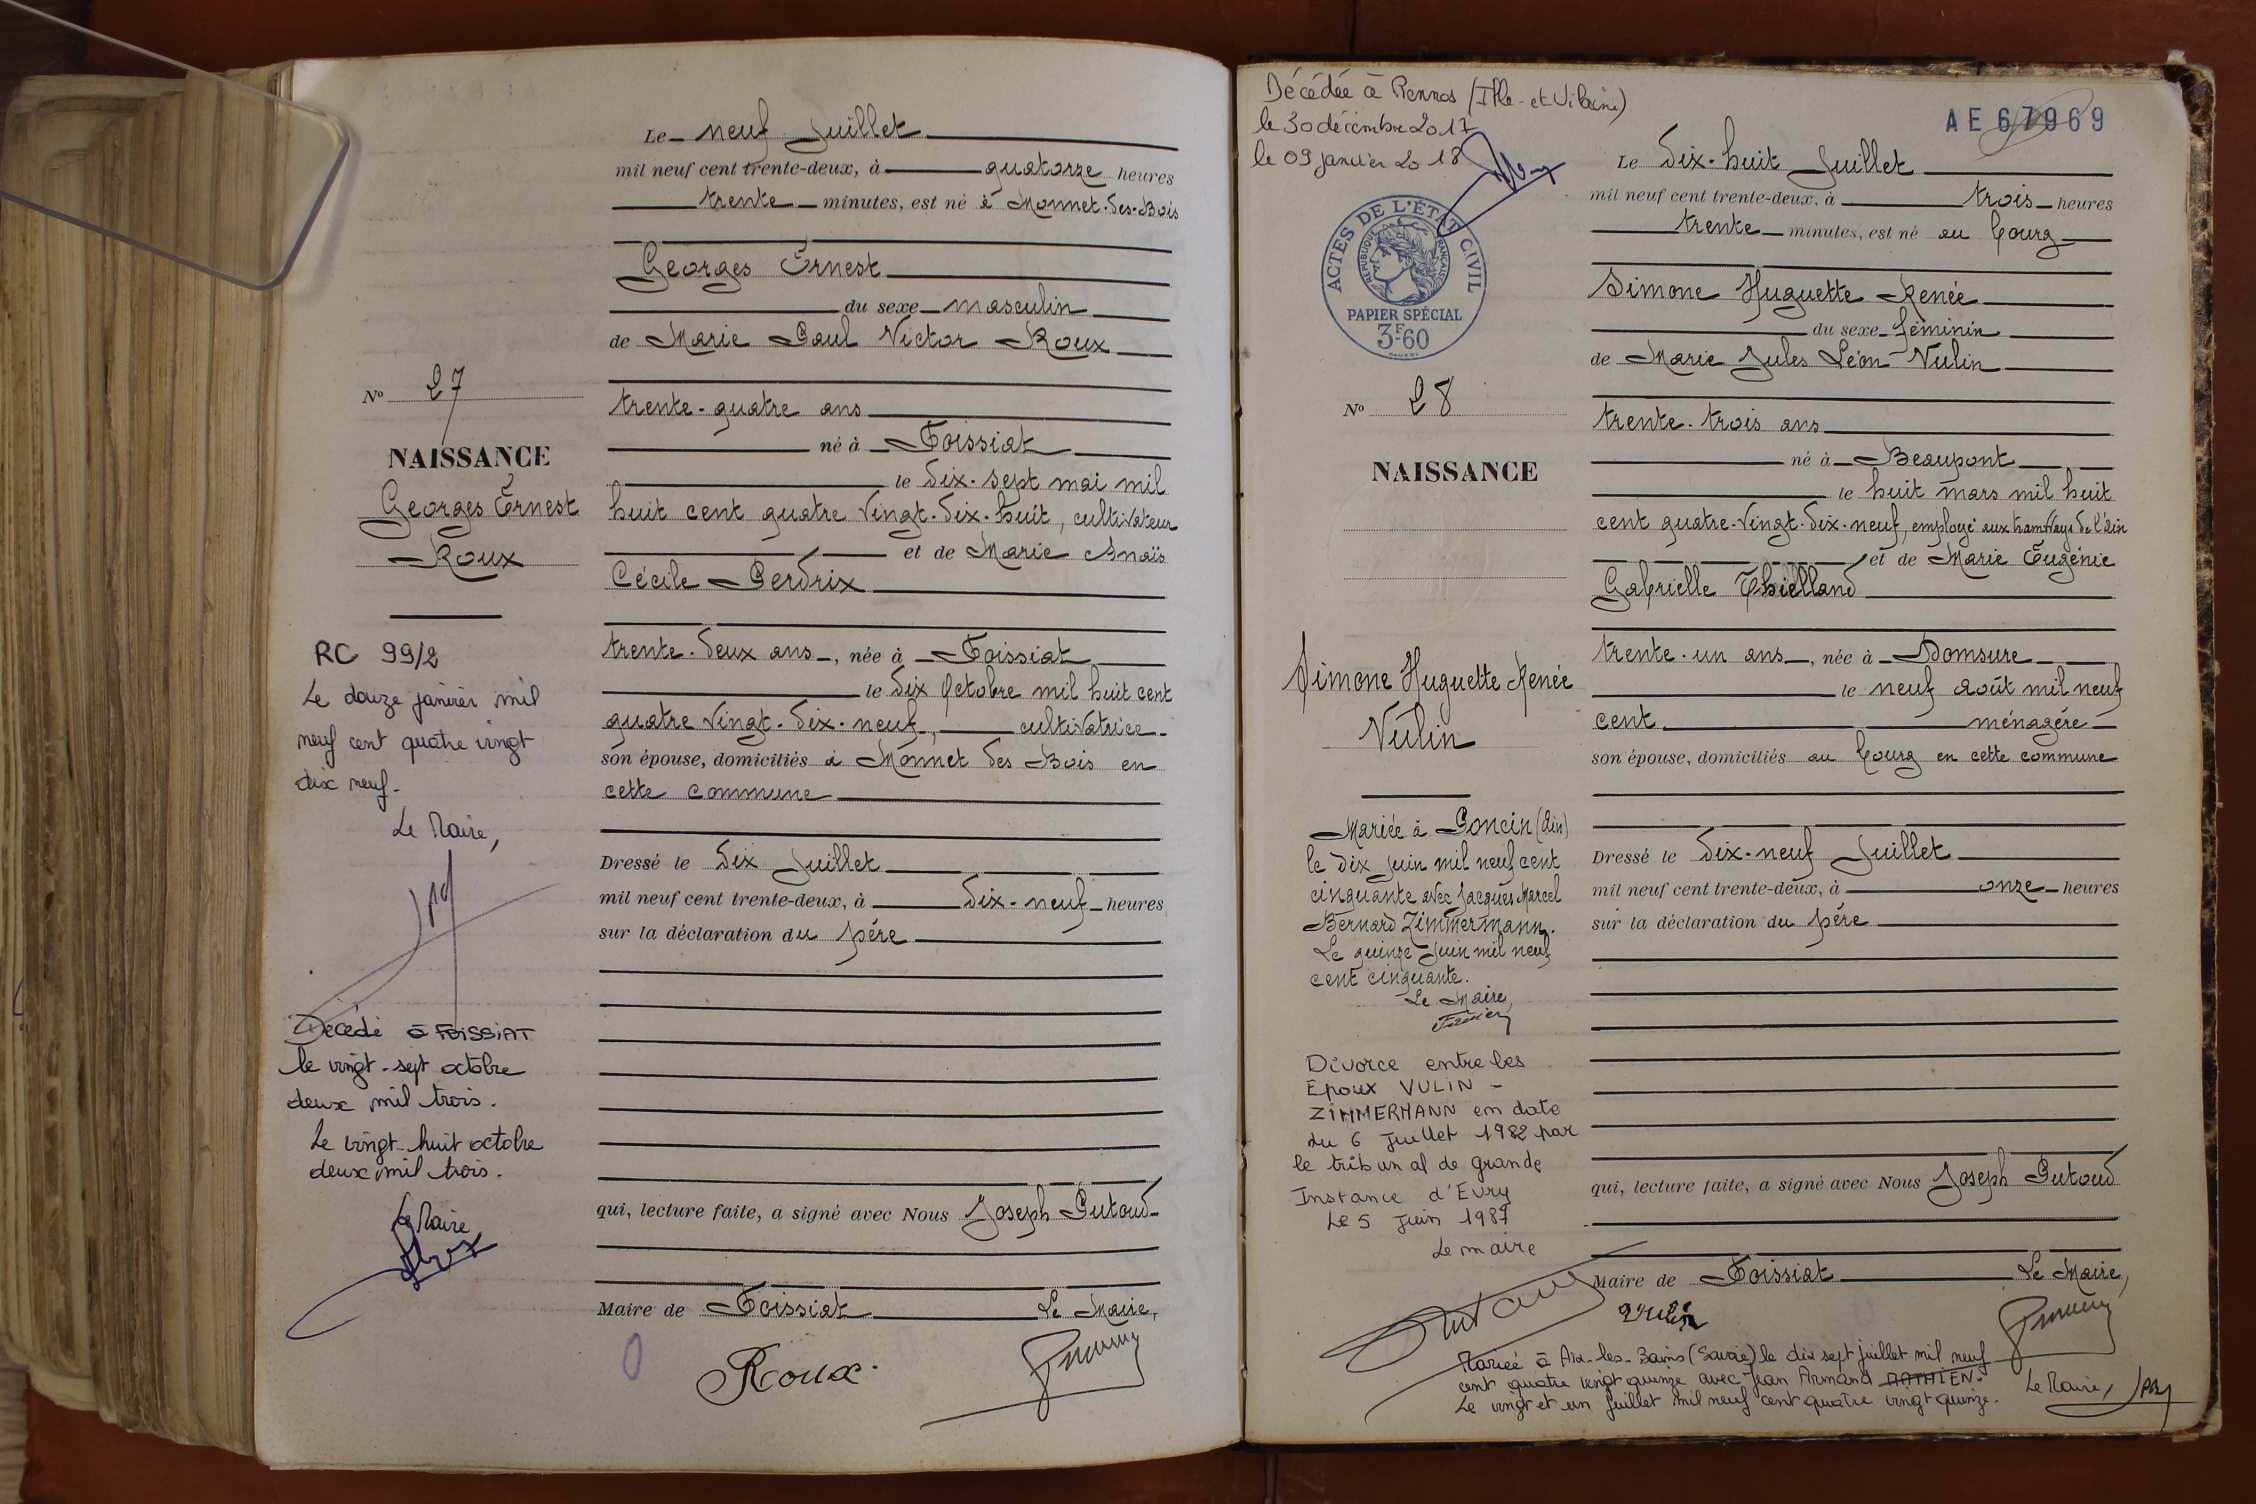 Le neuf Juillet
mil neuf cent trente-deux, à quatorze heures
trente minutes, est né à Monnet-des-Bois
Georges Ernest
du sexe masculin
de Marie Paul Victor Roux
trente-quatre ans
né à Foissiat
le dix-sept mai mil
huit cent quatre vingt-dix-huit, cultivateur
et de Marie Anaïs
Cécile Perdrix
trente-deux ans, née à Foissiat
le dix Octobre mil huit cent
quatre vingt-dix-neuf, cultivatrice
son épouse, domiciliés à Monnet des Bois en
cette commune
Dressé le dix Juillet
mil neuf cent trente-deux, à dix-neuf heures
sur la déclaration du père
qui, lecture faite, a signé avec Nous Joseph Putoud
Maire de Foissiat Le Maire,
Roux
No 27
NAISSANCE
Georges Ernest
Roux
RC 99/2
Le douze janvier mil
neuf cent quatre vingt
dix neuf.
Le Maire,
Décédé à FOISSIAT
le vingt-sept octobre
deux mil trois.
Le vingt-huit octobre
deux mil trois.
Le Maire
Décédée à Rennes (Ille-et-Vilaine)
le 30 décembre 2017
le 09 janvier 2018
AE 67969
ACTES DE L'ÉTAT CIVIL
RÉPUBLIQUE FRANÇAISE
PAPIER SPÉCIAL
3F60
Le dix-huit Juillet
mil neuf cent trente-deux, à trois heures
trente minutes, est né au bourg
Simone Huguette Renée
du sexe féminin
de Marie Jules Léon Vulin
trente-trois ans
né à Beaupont
le huit mars mil huit
cent quatre-vingt-dix-neuf, employé aux tramways de l'Ain
et de Marie Eugénie
Gabrielle Thielland
trente-un ans, née à Domsure
le neuf août mil neuf
cent ménagère
son épouse, domiciliés au bourg en cette commune
Dressé le dix-neuf Juillet
mil neuf cent trente-deux, à onze heures
sur la déclaration du père
qui, lecture faite, a signé avec Nous Joseph Putoud
Maire de Foissiat Le Maire,
Vulin
No 28
NAISSANCE
Simone Huguette Renée
Vulin
Mariée à Poncin (Ain)
le dix juin mil neuf cent
cinquante avec Jacques Marcel
Bernard Zimmermann.
Le quinze Juin mil neuf
cent cinquante.
Le Maire,
Divorce entre les
Epoux VULIN -
ZIMMERMANN en date
du 6 juillet 1982 par
le tribunal de grande
Instance d'Evry
Le 5 juin 1987
Le maire
Mariée à Aix-les-Bains (Savoie) le dix sept juillet mil neuf
cent quatre vingt quinze avec Jean Armand MATHIEN.
Le vingt et un juillet mil neuf cent quatre vingt quinze.
Le Maire,